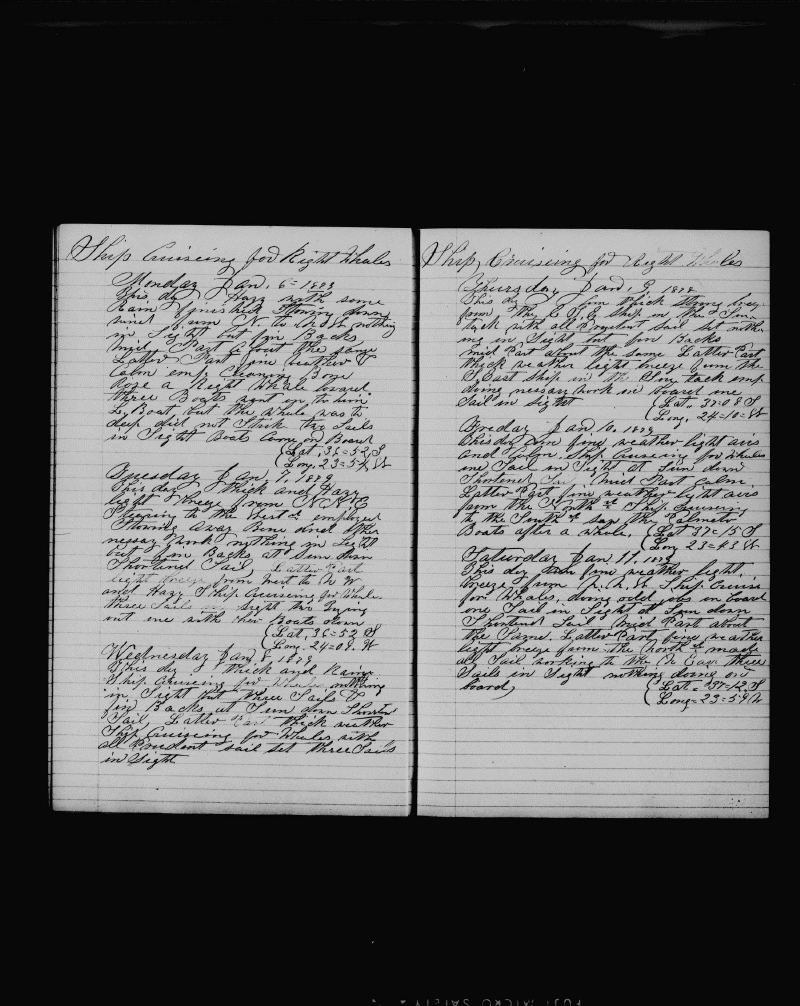 Ship Cruiseing for Right Whales
Monday Jan, 6= 1879
this day Hazy with some
Rain
nothing
in Sight but fin Backs
mid Part about the Same
Latter Part fine weather &
Calm emp Cleaning Bone
Rose a Right Whale lowerd
three Boats went on to him
L, Boat, but the Whale was to
deep did not Strike two Sails
in Sight Boats Came on Board
Lat, 36=52, S
Long, 23=54 W
Tuesday Jan, 7, 1879
this day thick and Hazy
light Breeze from N.N.E
Steering to the West employed
Stowing away Bone and other
nessary work nothing in Sight
but fin Backs at Sun down
Shortend Sail, Latter Part
light breeze from West to N W
and Hazy Ship Cruiseing for Whales
three Sails in Sight two Lying
and one with her Boats down
Lat, 36=52 S
Long. 24=08. W
Wednesday Jan, 8 1879
this day thick and Rainy
Ship Cruiseing for Whales nothing
in Sight but three Sails &
fin Backs, at Sun down Shorten
Sail, Latter Part thick weather
Ship Cruiseing for Whales with
all Prudent sail set three Sails
in Sight
Ship, Cruiseing for Right Whales
Thursday Jan, 9, 1879
this day thick Strong breeze
from the Ship on the
tack with all Prudent Sail set noth
ing in Sight but fin Backs
mid Part about the Same Latter Part
thick weather light breeze from the
East Ship on the tack emp
doing nessary work on board one
Sail in Sight
Lat, 37=08 S
Long, 24=10= W
Friday Jan 10. 1879
this day fine weather light airs
and Calm, Ship Cruiseing for Whales
one Sail in Sight at Sun down
Shortend Sail, mid Part Calm
Latter Part fine weather light airs
from the North Ship Cruiseing
to the South saw the Palmeto
Boats after a whale,
Lat 37=15 S
Long 23=43 W
Saturday Jan 11, 1879
this day fine weather light
breeze from N.N.W Ship Cruise
for Whales, doing odd jobs on board
one Sail in Sight at Sun down
Shortend Sail Mid Part about
the Same. Latter Part fine weather
light breeze from the North made
all Sail working to the N East three
Sails in Sight nothing doing on
board,
Lat = 37=12, S
Long = 23=59 W